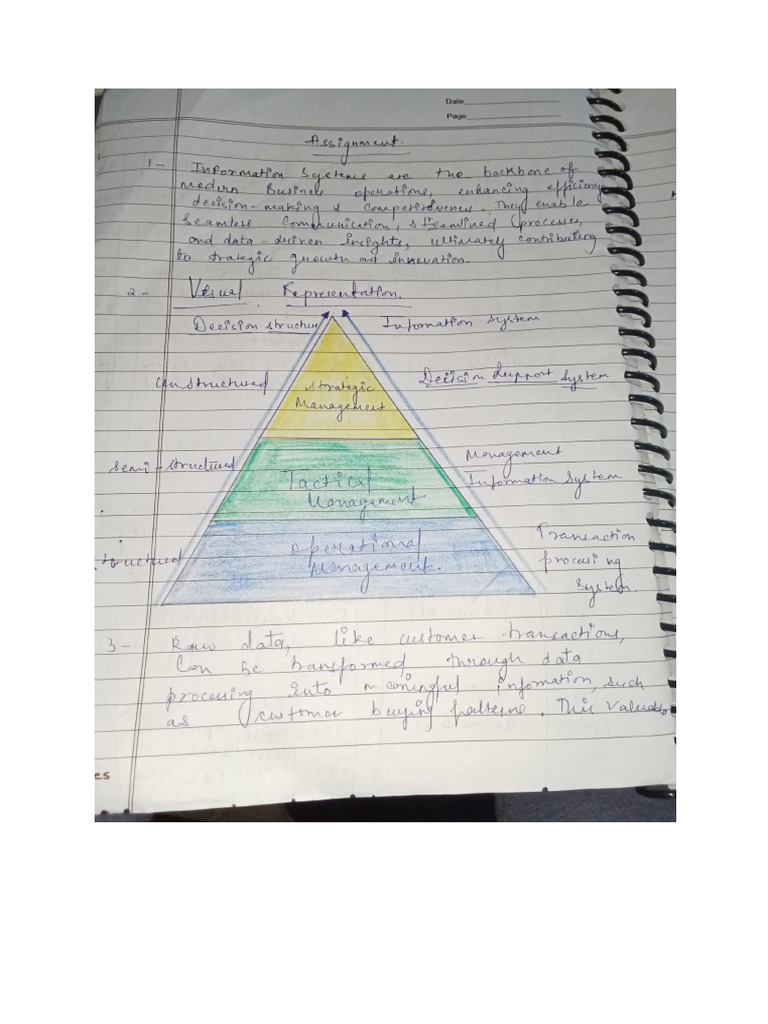 Date
Page
Assignment.
1- Information Systems are the backbone of
modern Business operations, enhancing efficiency
decision-making & competitiveness. They enable
seamless communication, streamlined processes,
and data-driven insights, ultimately contributing
to strategic growth and innovation.
2- Visual Representation.
Decision structure Information System
Unstructured Strategic Management Decision Support System
Semi-structured Tactical Management Management Information System
structured Operational Management. Transaction processing System.
3- Raw data, like customer transactions,
Can be transformed through data
processing into meaningful information, such
as customer buying patterns. This valuable
es